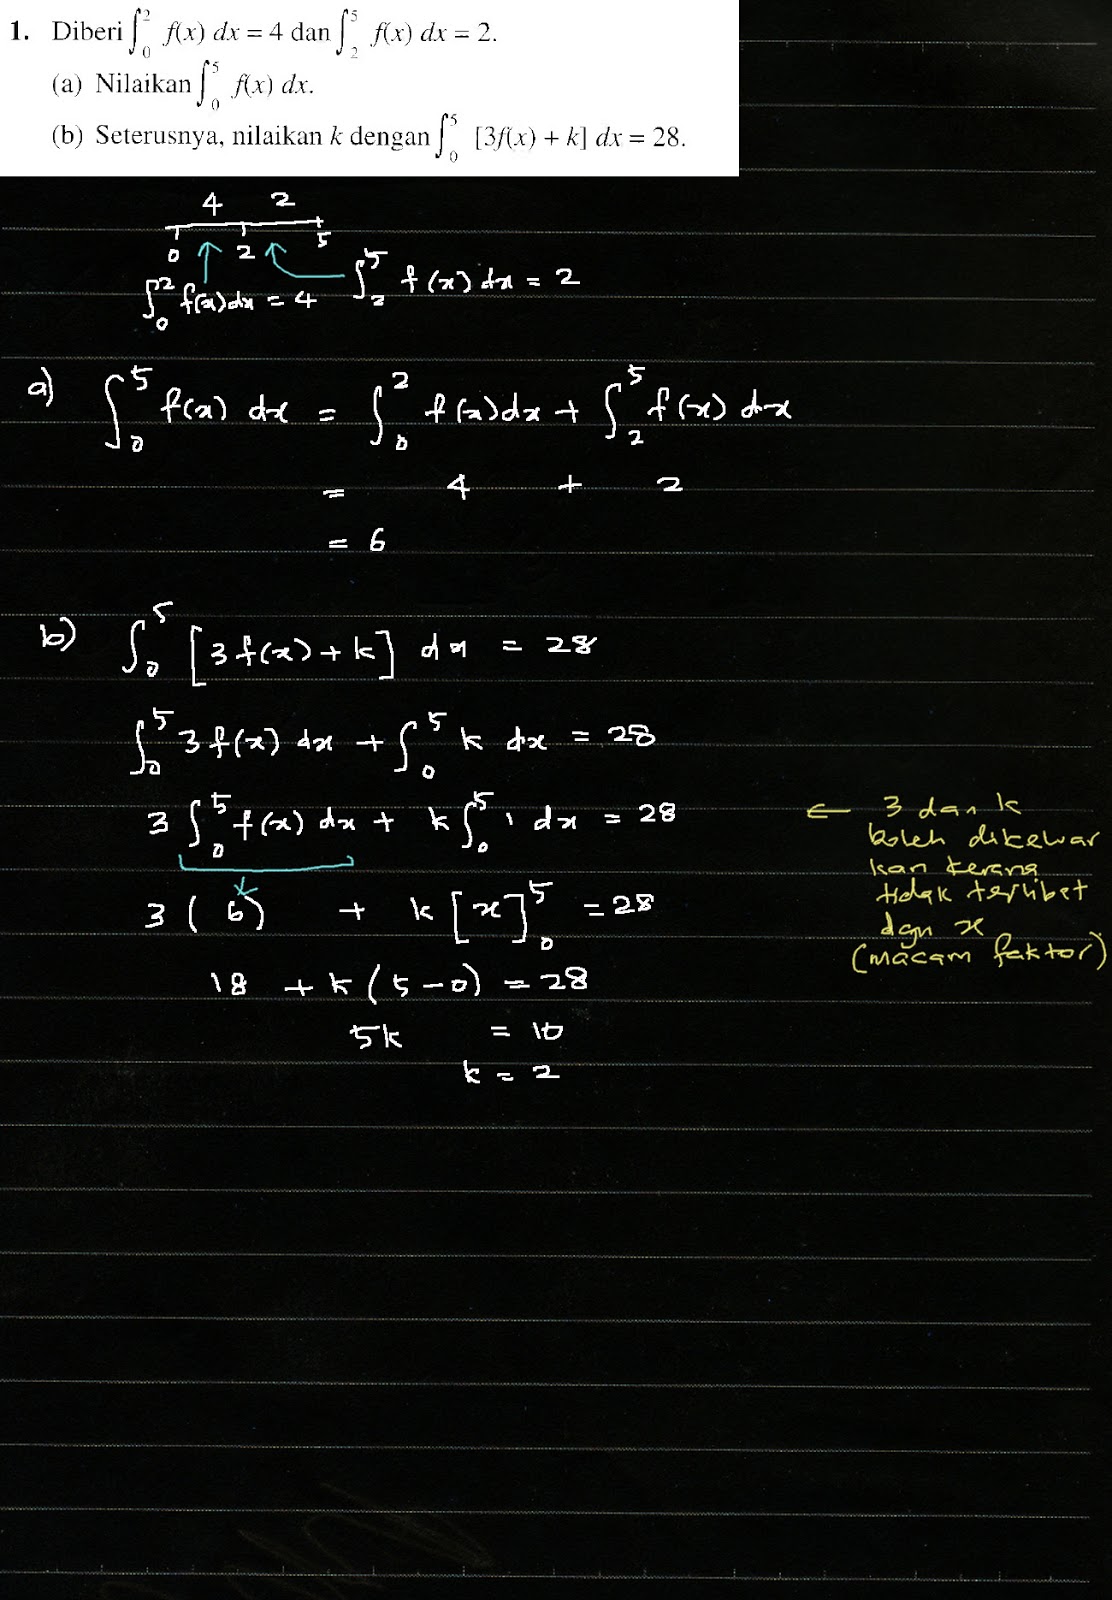 1. Diberi ∫₀² f(x) dx = 4 dan ∫₂⁵ f(x) dx = 2.
(a) Nilaikan ∫₀⁵ f(x) dx.
(b) Seterusnya, nilaikan k dengan ∫₀⁵ [3f(x) + k] dx = 28.
4 2
0 2 5
∫₀² f(x) dx = 4 ∫₂⁵ f(x) dx = 2
a) ∫₀⁵ f(x) dx = ∫₀² f(x) dx + ∫₂⁵ f(x) dx
= 4 + 2
= 6
b) ∫₀⁵ [3f(x) + k] dx = 28
∫₀⁵ 3f(x) dx + ∫₀⁵ k dx = 28
3 ∫₀⁵ f(x) dx + k ∫₀⁵ 1 dx = 28
← 3 dan k
boleh dikeluar
kan kerana
tidak terlibat
dgn x
(macam faktor)
3 (6) + k [x]₀⁵ = 28
18 + k (5 - 0) = 28
5k = 10
k = 2